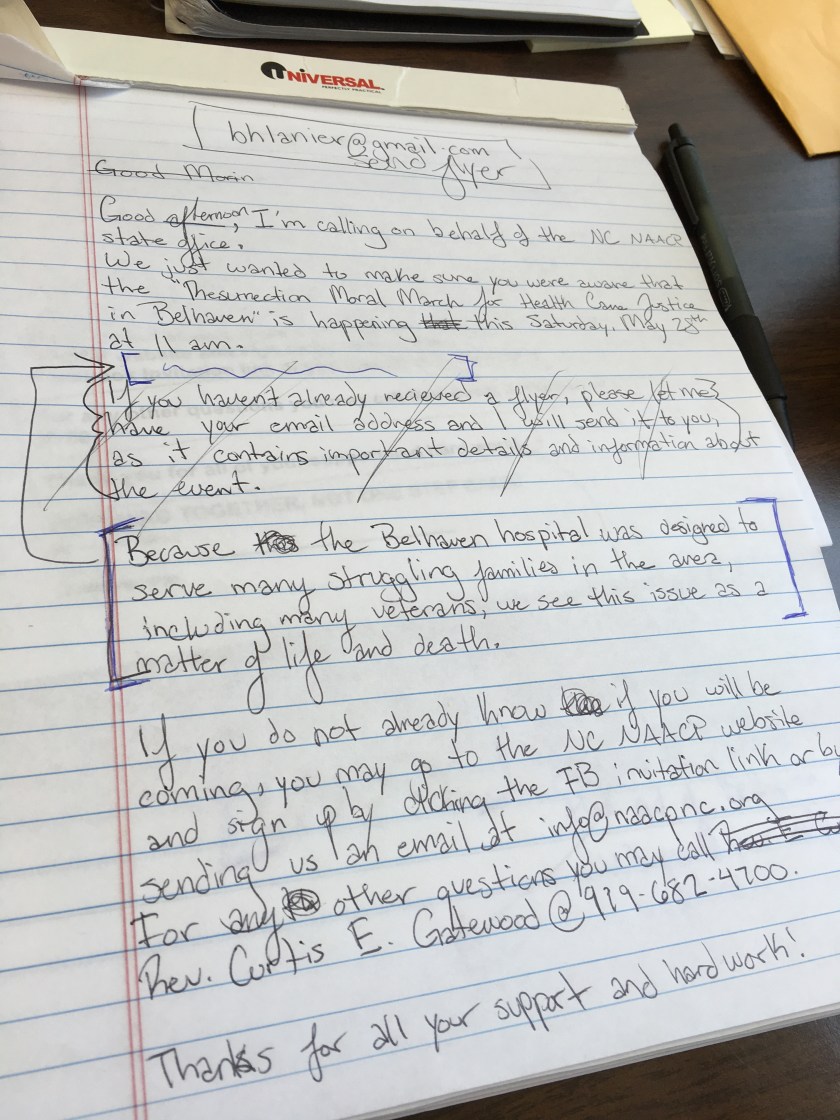 UNIVERSAL
PERFECTLY PRACTICAL
bhlanier@gmail.com
send flyer
Good Morin
Good afternoon, I'm calling on behalf of the NC NAACP
state office.
We just wanted to make sure you were aware that
the "Resurrection Moral March for Health Care Justice
in Belhaven" is happening that this Saturday, May 28th
at 11 am.
If you haven't already recieved a flyer, please let me
have your email address and I will send it to you,
as it contains important details and information about
the event.
Because the Belhaven hospital was designed to
serve many struggling families in the area,
including many veterans, we see this issue as a
matter of life and death.
If you do not already know if you will be
coming, you may go to the NC NAACP website
and sign up by clicking the FB invitation link or by
sending us an email at info@naacpnc.org
For any other questions you may call
Rev. Curtis E. Gatewood @ 919-682-4700.
Thanks for all your support and hard work!